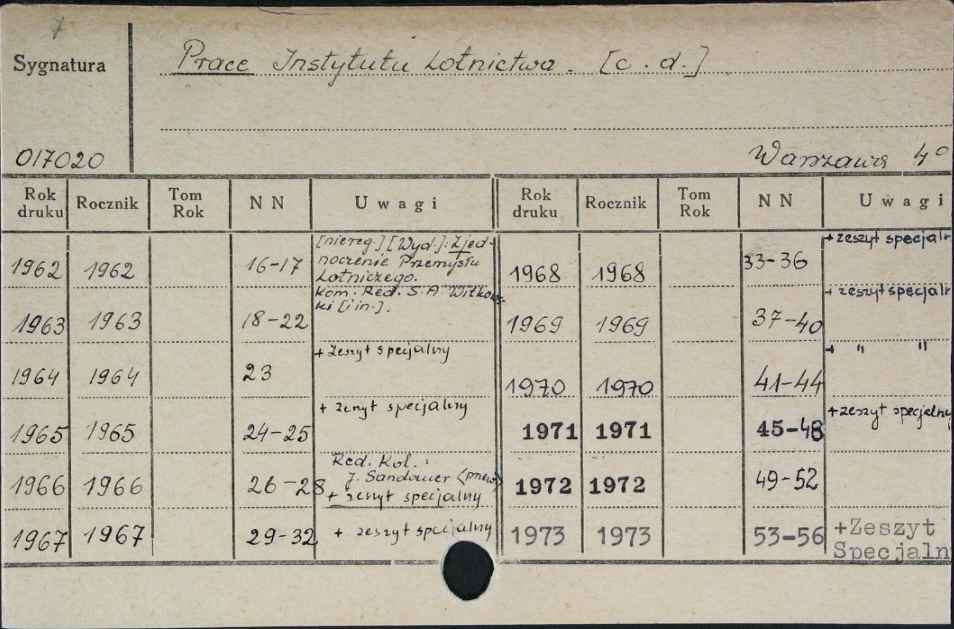 7
Sygnatura
Prace Instytutu Lotnictwa. [c.d.]
017020
Warszawa 4°
Rok druku Rocznik Tom Rok NN Uwagi Rok druku Rocznik Tom Rok NN Uwagi
1962 1962 16-17 [niereg.] [Wyd.]: Zjed-
noczenie Przemysłu
Lotniczego.
Kom. Red. S. A. Witkows-
ki [i in.].
1963 1963 18-22
1964 1964 23 + Zeszyt specjalny
1965 1965 24-25 + zeszyt specjalny
1966 1966 26-28 Red. Kol.:
J. Sandauer
+ zeszyt specjalny
1967 1967 29-32 + zeszyt specjalny
1968 1968 33-36 + zeszyt specjaln
1969 1969 37-40 + zeszyt specjaln
1970 1970 41-44 + " "
1971 1971 45-48 + zeszyt specjalny
1972 1972 49-52
1973 1973 53-56 +Zeszyt
Specjaln